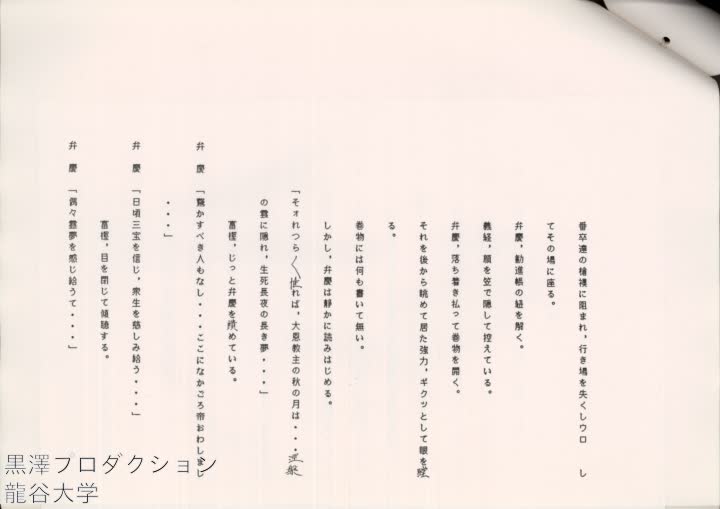 番卒達の槍襖に阻まれ，行き場を失くしウロ　し
てその場に座る。
弁慶，勧進帳の紐を解く。
義経，顔を笠で隠して控えている。
弁慶，落ち着き払って巻物を開く。
それを後から眺めて居た強力，ギクッとして眼を瞠
る。
巻物には何も書いて無い。
しかし，弁慶は静かに読みはじめる。
「そォれつら〳〵惟れば，大恩教主の秋の月は・・・涅槃
の雲に隠れ，生死長夜の長き夢・・・」
富樫，じっと弁慶を瞶めている。
弁　慶　「驚かすべき人もなし・・・ここになかごろ帝おわしまし
・・・」
弁　慶　「日頃三宝を信じ，衆生を慈しみ給う・・・」
富樫，目を閉じて傾聴する。
弁　慶　「偶々霊夢を感じ給うて・・・」
黒澤プロダクション
龍谷大学